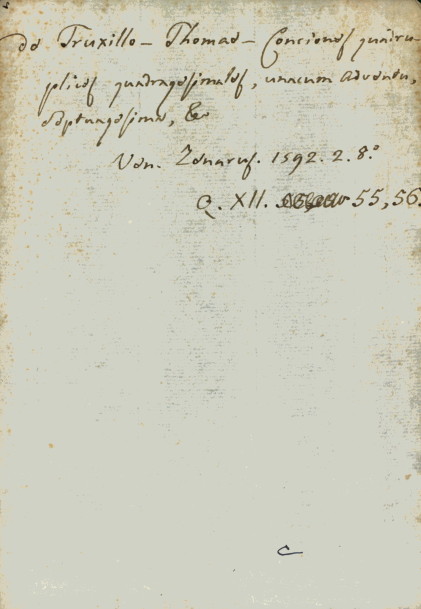 de Truxillo - Thomas - Conciones quadru-
plices quadragesimales, unacum Adventu,
septuagesima, &c
Ven. Zenarus. 1592. 2. 8.º
Q. XII. 55, 56.
C